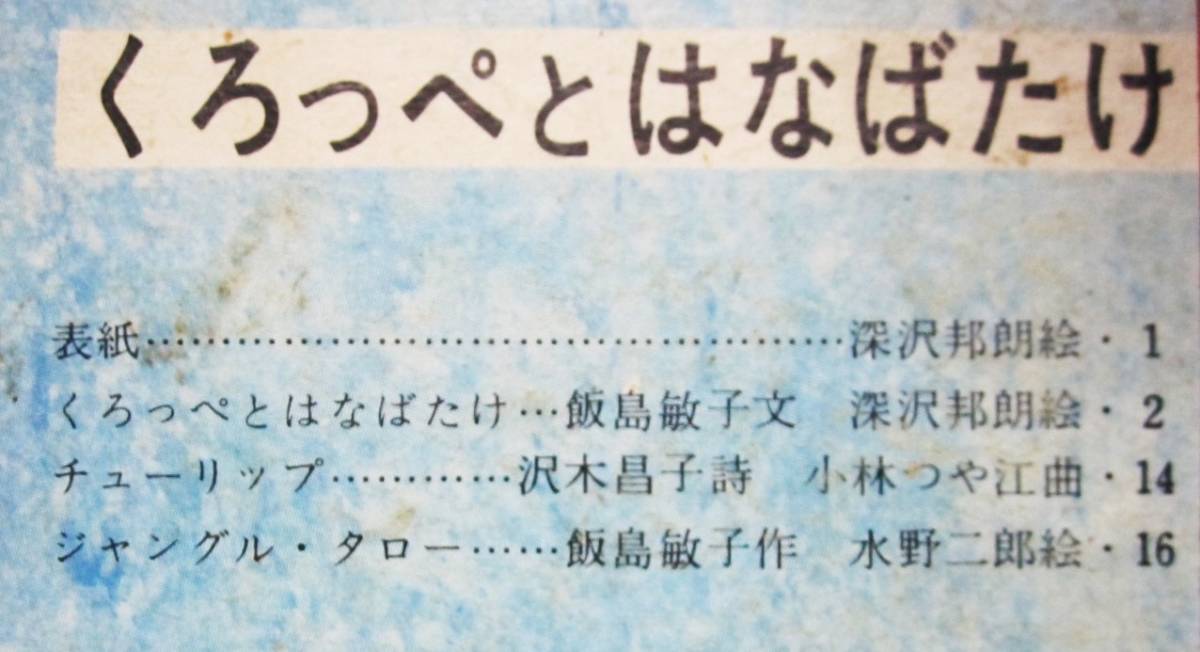 くろっぺとはなばたけ
表紙……………………………………………深沢邦朗絵・1
くろっぺとはなばたけ…飯島敏子文　深沢邦朗絵・2
チューリップ…………沢木昌子詩　小林つや江曲・14
ジャングル・タロー……飯島敏子作　水野二郎絵・16